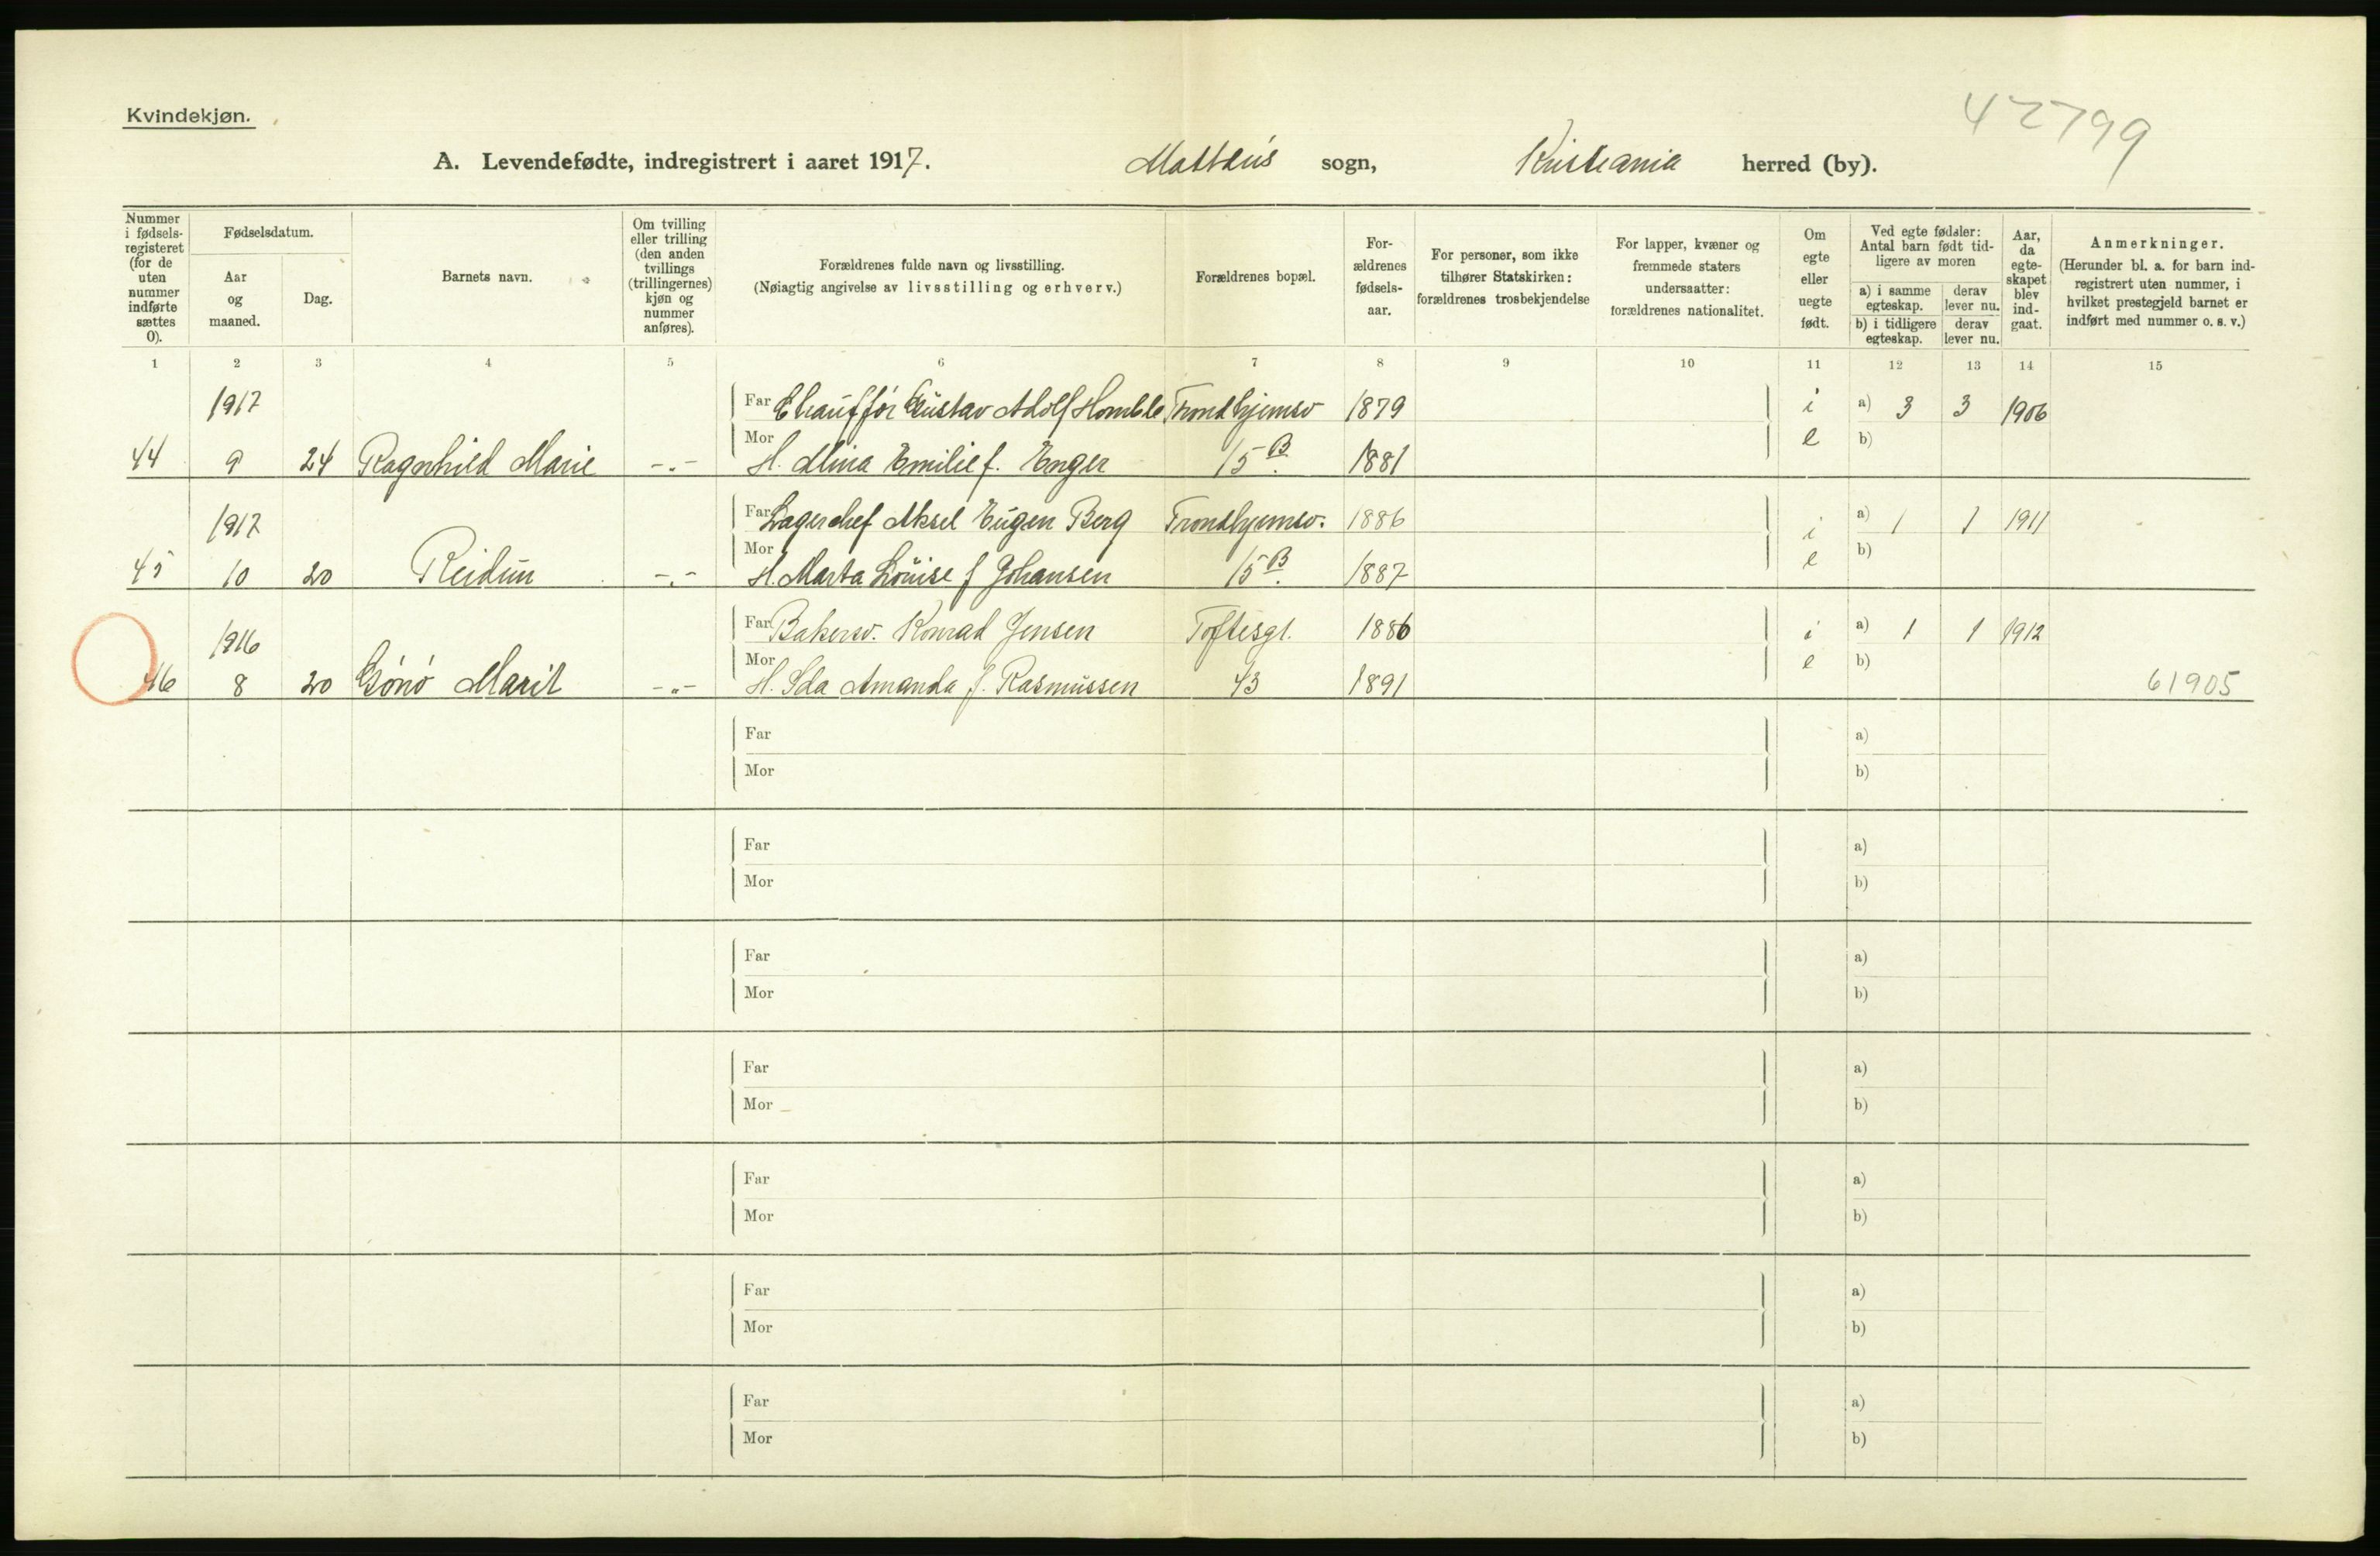 Kvindekjøn.
42799
A. Levendefødte, indregistrert i aaret 1917. Mattæus sogn, Kristiania herred (by).
Nummer i fødsels-registeret (for de uten nummer indførte sættes 0).
Fødselsdatum.
Aar og maaned.
Dag.
Barnets navn.
Om tvilling eller trilling (den anden tvillings (trillingernes) kjøn og nummer anføres).
Forældrenes fulde navn og livsstilling.
(Nøiagtig angivelse av livsstilling og erhverv.)
Forældrenes bopæl.
For-ældrenes fødsels-aar.
For personer, som ikke tilhører Statskirken: forældrenes trosbekjendelse
For lapper, kvæner og fremmede staters undersaatter: forældrenes nationalitet.
Om egte eller uegte født.
Ved egte fødsler: Antal barn født tid-ligere av moren
a) i samme egteskap. derav lever nu.
b) i tidligere egteskap. derav lever nu.
Aar, da egte-skapet blev ind-gaat.
Anmerkninger.
(Herunder bl. a. for barn ind-registrert uten nummer, i hvilket prestegjeld barnet er indført med nummer o. s. v.)
1 2 3 4 5 6 7 8 9 10 11 12 13 14 15
1917 Far Chauffør Gustav Adolf Homble Trondhjemsv 1879 i a) 3 3 1906
44 9 24 Ragnhild Marie -„- Mor H. Alma Emilie f. Enger 15 B. 1881 e b)
1917 Far Lagerchef Aksel Eugen Berg Trondhjemsv. 1886 i a) 1 1 1911
45 10 20 Reidun -„- Mor H. Marta Louise f Johansen 15 B. 1887 e b)
1916 Far Bakersv. Konrad Jensen Toftesgt. 1886 i a) 1 1 1912
46 8 20 Gønø Marit -„- Mor H. Ida Amanda f. Rasmussen 43 1891 e b) 61905
Far a)
Mor b)
Far a)
Mor b)
Far a)
Mor b)
Far a)
Mor b)
Far a)
Mor b)
Far a)
Mor b)
Far a)
Mor b)